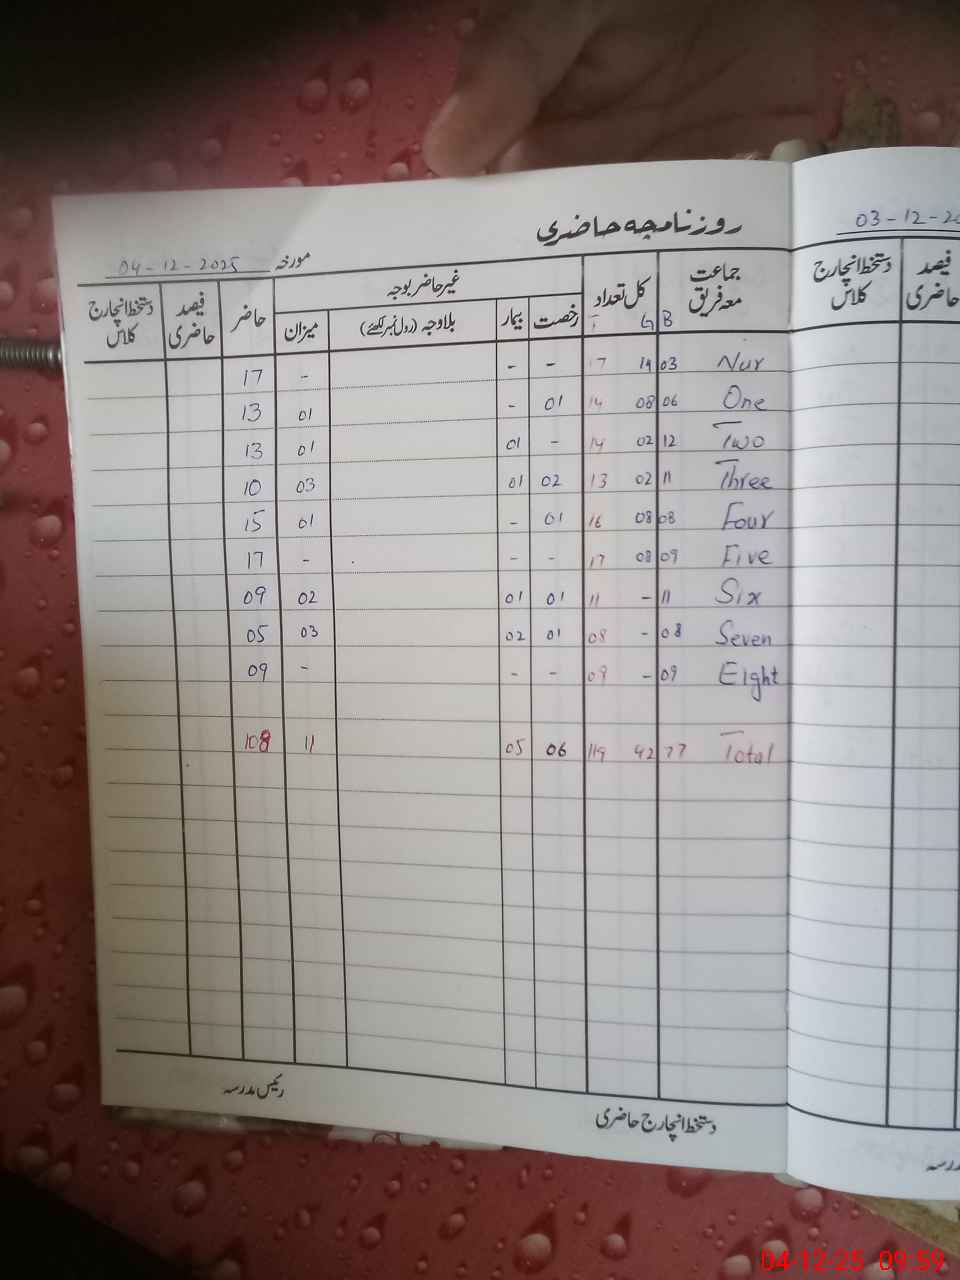 روزنامچہ حاضری
مورخہ 04-12-2025
جماعت معہ فریق B G کل تعداد T غیر حاضر بوجہ رخصت بیمار بلاوجہ (رول نمبر لکھئے) میزان حاضر فیصد حاضری دستخط انچارج کلاس
Nur 03 14 17 - - - 17
One 06 08 14 01 - 01 13
Two 12 02 14 - 01 01 13
Three 11 02 13 02 01 03 10
Four 08 08 16 01 - 01 15
Five 09 08 17 - - - 17
Six 11 - 11 01 01 02 09
Seven 08 - 08 01 02 03 05
Eight 09 - 09 - - - 09
Total 77 42 119 06 05 11 108
دستخط انچارج حاضری
رئیس مدرسہ
03-12-20
دستخط انچارج کلاس فیصد حاضری
04-12-25 09:59